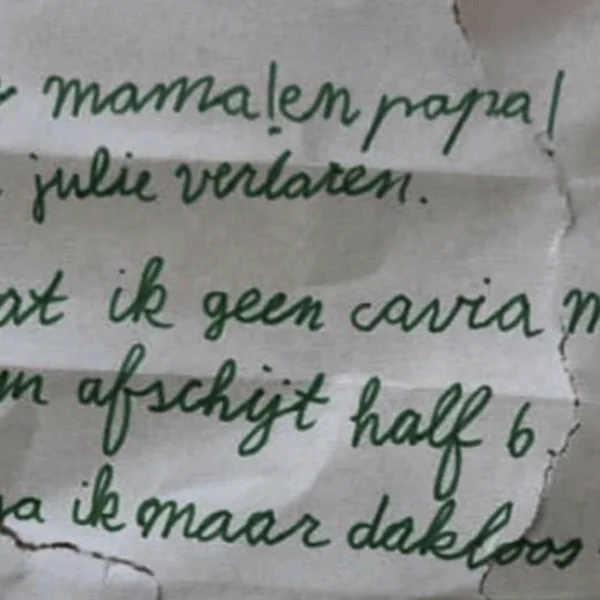 mama!en papa!
julie verlaten.
at ik geen cavia m
n afschijt half 6.
a ik maar dakloos